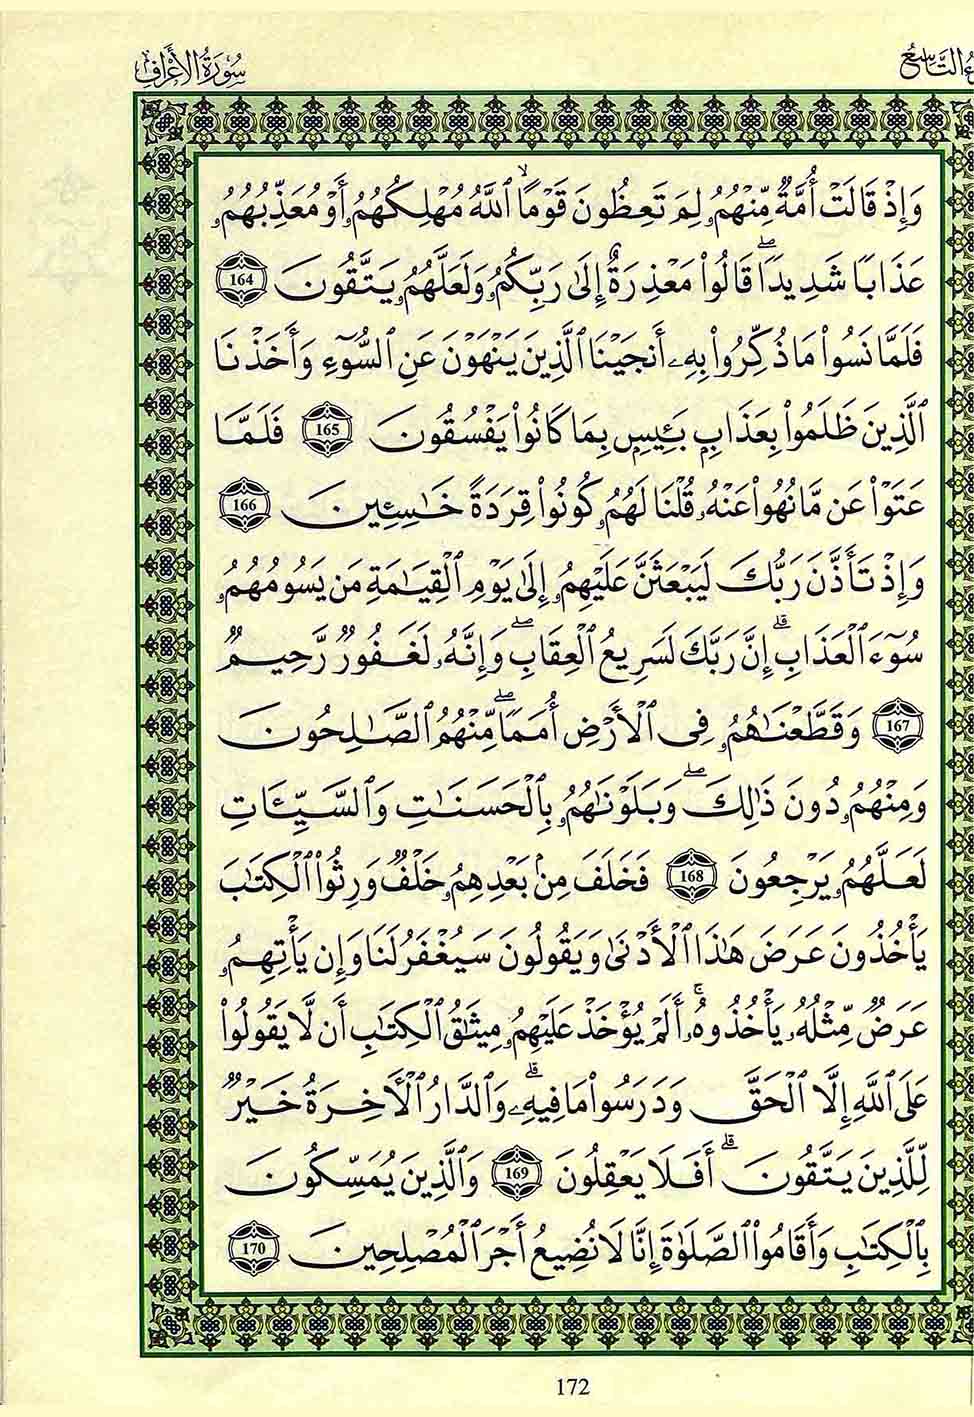 ءُ التَّاسِعُ
سُورَةُ الأَعْرَافِ
وَإِذْ قَالَتْ أُمَّةٌ مِّنْهُمُۥ لِمَ تَعِظُونَ قَوْمًا ٱللَّهُ مُهْلِكُهُمُۥ أَوْ مُعَذِّبُهُمُۥ
عَذَابًا شَدِيدًاۖ قَالُوا۟ مَعْذِرَةٌ إِلَىٰ رَبِّكُمُۥ وَلَعَلَّهُمُۥ يَتَّقُونَ 164
فَلَمَّا نَسُوا۟ مَا ذُكِّرُوا۟ بِهِۦ أَنجَيْنَا ٱلَّذِينَ يَنْهَوْنَ عَنِ ٱلسُّوٓءِ وَأَخَذْنَا
ٱلَّذِينَ ظَلَمُوا۟ بِعَذَابٍۭ بَـِٔيسٍۭ بِمَا كَانُوا۟ يَفْسُقُونَ 165 فَلَمَّا
عَتَوْا۟ عَن مَّا نُهُوا۟ عَنْهُۥ قُلْنَا لَهُمُۥ كُونُوا۟ قِرَدَةً خَـٰسِـِٔينَ 166
وَإِذْ تَأَذَّنَ رَبُّكَ لَيَبْعَثَنَّ عَلَيْهِمُۥ إِلَىٰ يَوْمِ ٱلْقِيَـٰمَةِ مَن يَسُومُهُمُۥ
سُوٓءَ ٱلْعَذَابِۗ إِنَّ رَبَّكَ لَسَرِيعُ ٱلْعِقَابِۖ وَإِنَّهُۥ لَغَفُورٌ رَّحِيمٌ
167 وَقَطَّعْنَـٰهُمُۥ فِى ٱلْأَرْضِ أُمَمًاۖ مِّنْهُمُ ٱلصَّـٰلِحُونَ
وَمِنْهُمُۥ دُونَ ذَٰلِكَۖ وَبَلَوْنَـٰهُمُۥ بِٱلْحَسَنَـٰتِ وَٱلسَّيِّـَٔاتِ
لَعَلَّهُمُۥ يَرْجِعُونَ 168 فَخَلَفَ مِنۢ بَعْدِهِمُۥ خَلْفٌ وَرِثُوا۟ ٱلْكِتَـٰبَ
يَأْخُذُونَ عَرَضَ هَـٰذَا ٱلْأَدْنَىٰ وَيَقُولُونَ سَيُغْفَرُ لَنَا وَإِن يَأْتِهِمُۥ
عَرَضٌ مِّثْلُهُۥ يَأْخُذُوهُۥۚ أَلَمْ يُؤْخَذْ عَلَيْهِمُۥ مِيثَـٰقُ ٱلْكِتَـٰبِ أَن لَّا يَقُولُوا۟
عَلَى ٱللَّهِ إِلَّا ٱلْحَقَّ وَدَرَسُوا۟ مَا فِيهِۦۗ وَٱلدَّارُ ٱلْأَخِرَةُ خَيْرٌ
لِّلَّذِينَ يَتَّقُونَۗ أَفَلَا يَعْقِلُونَ 169 وَٱلَّذِينَ يُمَسِّكُونَ
بِٱلْكِتَـٰبِ وَأَقَامُوا۟ ٱلصَّلَوٰةَ إِنَّا لَا نُضِيعُ أَجْرَ ٱلْمُصْلِحِينَ 170
172